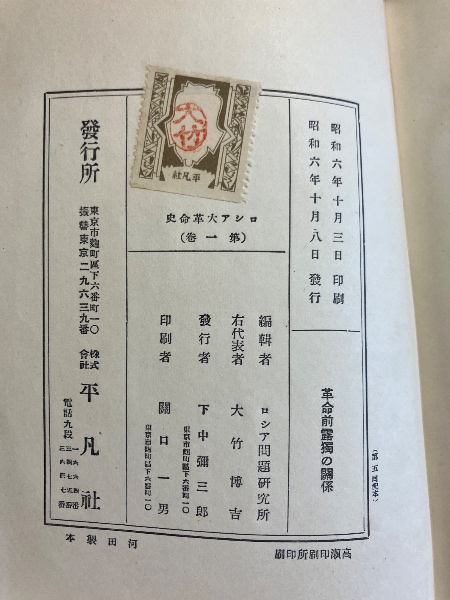 昭和六年十月三日印刷
昭和六年十月八日發行
革命前露獨の關係
ロシア大革命史
(第一卷)
編輯者 ロシア問題研究所
右代表者 大竹博吉
發行者 下中彌三郎
東京市麴町區下六番町一〇
印刷者 關口一男
發行所
東京市麴町區下六番町一〇
振替東京二九六三九番
株式會社 平凡社
電話九段
大竹
平凡社
河田製本
高淑印刷所印刷